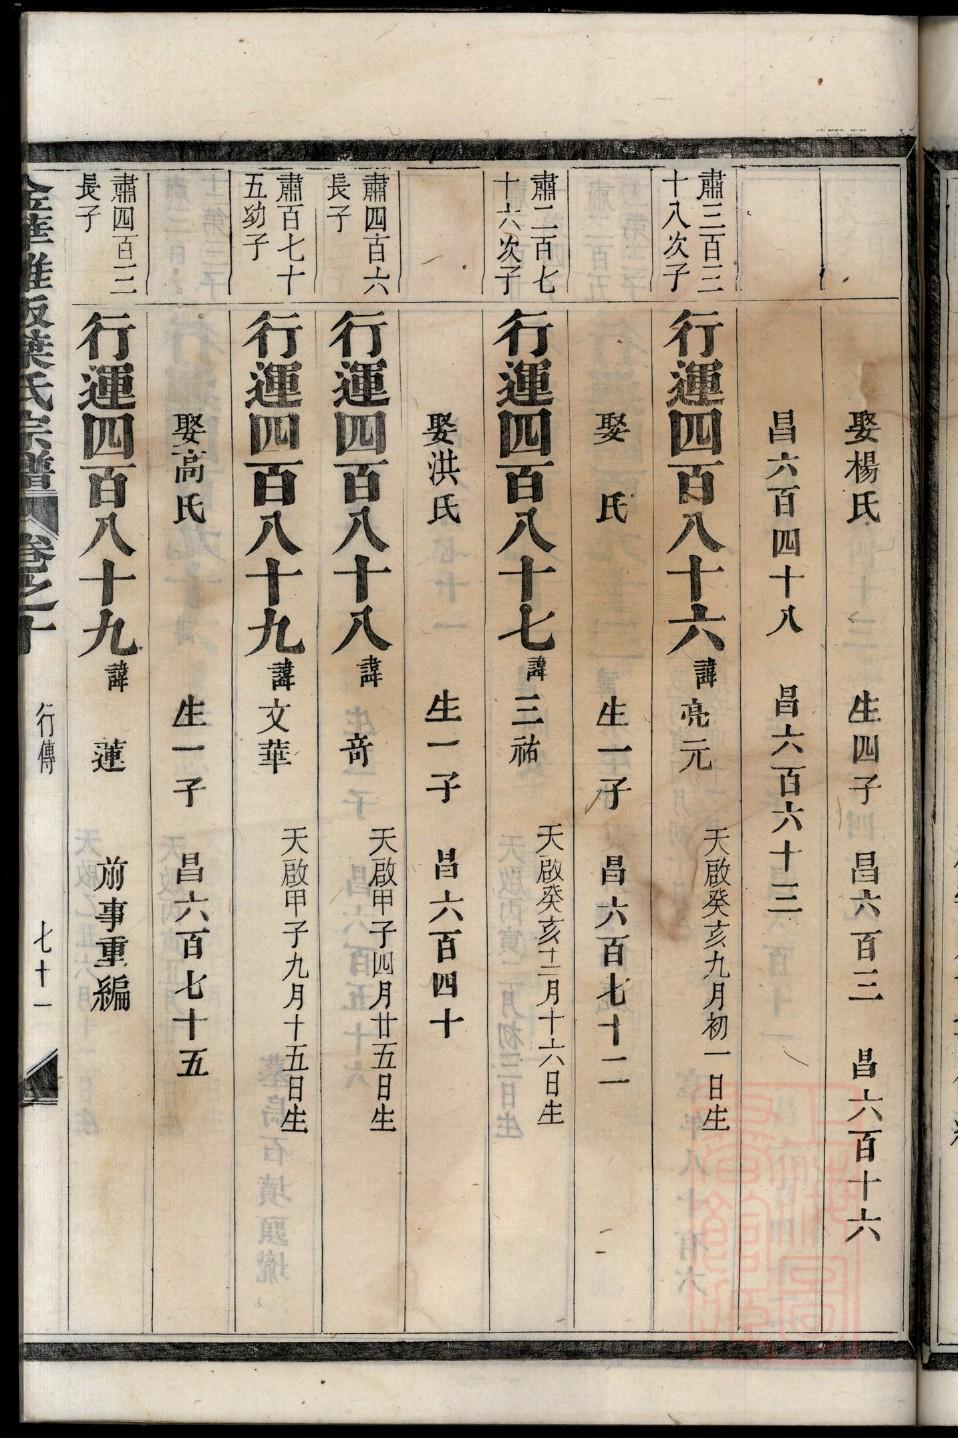 娶楊氏 生四子 昌六百三 昌六百十六
昌六百四十八 昌六百六十三
肅三百三十八次子
行運四百八十六 諱亮元 天啟癸亥九月初一日生
娶 氏 生一子 昌六百七十二
肅二百七十六次子
行運四百八十七 諱三祐 天啟癸亥十二月十六日生
娶洪氏 生一子 昌六百四十
肅四百六長子
行運四百八十八 諱奇 天啟甲子四月廿五日生
肅百七十五幼子
行運四百八十九 諱文華 天啟甲子九月十五日生
娶高氏 生一子 昌六百七十五
肅四百三長子
行運四百八十九 諱蓮 前事重編
金華 葉氏宗譜 卷之十 行傳 七十一